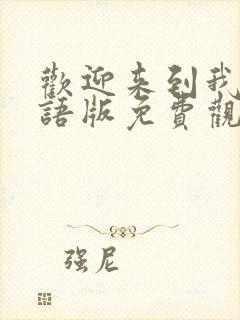 歡迎来到我
語版免費觀
强尼